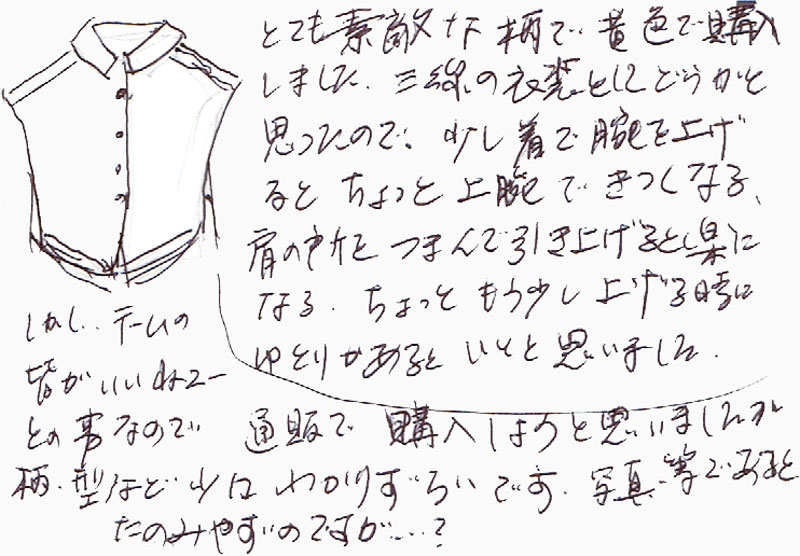 とても素敵な柄で黄色で購入
しました。三線の衣装としてどうかと
思ったので、少し着て腕を上げ
るとちょっと上腕できつくなる、
肩の所をつまんで引き上げると楽に
なる。ちょっともう少し上げる時に
ゆとりがあるといいと思いました。
しかし、チームの
皆がいいねえー
との事なので 通販で購入しようと思いましたが
柄、型など少しわかりずらいです。写真等であると
たのみやすいのですが……?